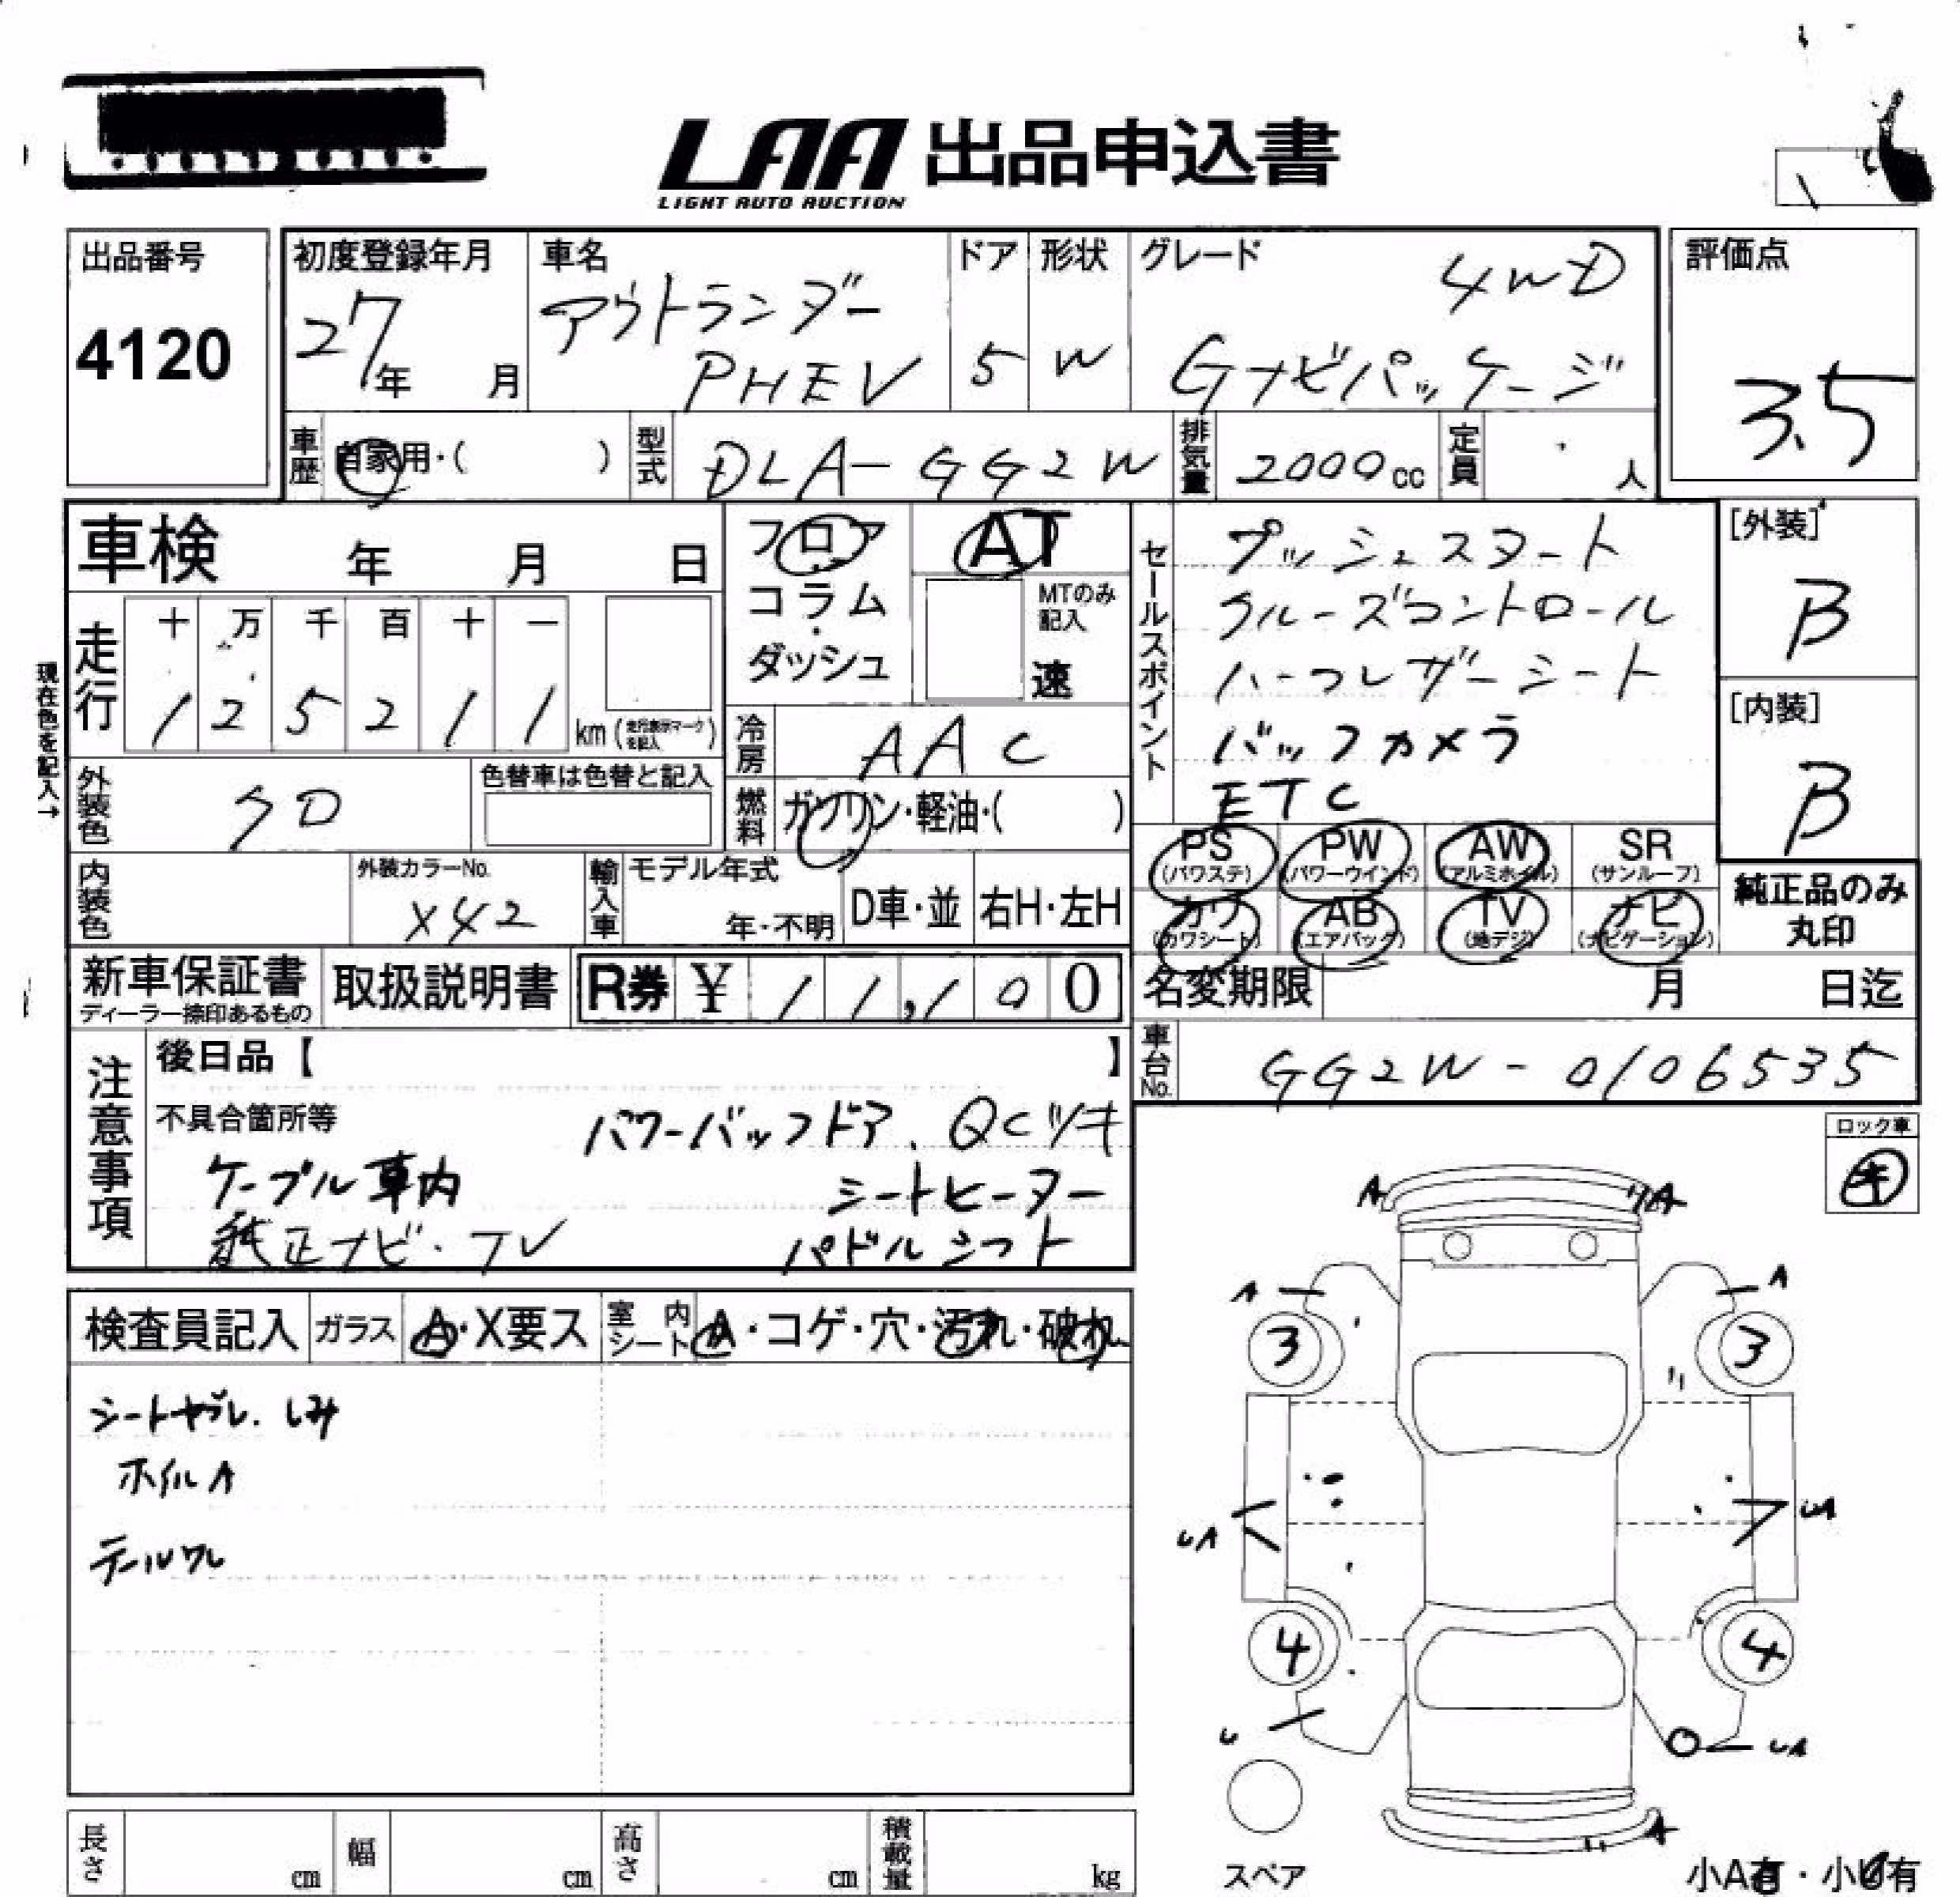 LAA 出品申込書
LIGHT AUTO AUCTION
出品番号
4120
初度登録年月
27年 月
車名
アウトランダー
PHEV
ドア
5
形状
W
グレード
4WD
Gナビパッケージ
評価点
3.5
車歴 自家用・( )
型式 DLA-GG2W
排気量 2000cc
定員 人
車検 年 月 日
フロア
コラム
・
ダッシュ
AT
MTのみ
記入
速
セールスポイント
プッシュスタート
クルーズコントロール
ハーフレザーシート
バックカメラ
ETC
[外装]
B
[内装]
B
現在色を記入→
走行
十 万 千 百 十 一
1 2 5 2 1 1
km (走行表示マークを記入)
冷房 AAC
燃料 ガソリン・軽油・( )
外装色
クロ
色替車は色替と記入
内装色
外装カラーNo.
X42
輸入車
モデル年式
年・不明
D車・並
右H・左H
PS
(パワステ)
PW
(パワーウインド)
AW
(アルミホイル)
SR
(サンルーフ)
カワ
(カワシート)
AB
(エアバック)
TV
(地デジ)
ナビ
(ナビゲーション)
純正品のみ
丸印
新車保証書
ディーラー捺印あるもの
取扱説明書
R券 ¥ 11,100
名変期限 月 日迄
車台No. GG2W-0106535
注意事項
後日品【 】
不具合箇所等
パワーバックドア、QCツキ
ケーブル車内 シートヒーター
純正ナビ・TV パドルシフト
ロック車
キ
検査員記入
ガラス A・X要ス
室内シート A・コゲ・穴・汚れ・破れ
シートヤブレ、しみ
ホイルA
テールワレ
A A
A A
3 3
UA UA
4 4
U UA
A
スペア
小A有・小U有
長さ cm
幅 cm
高さ cm
積載量 kg